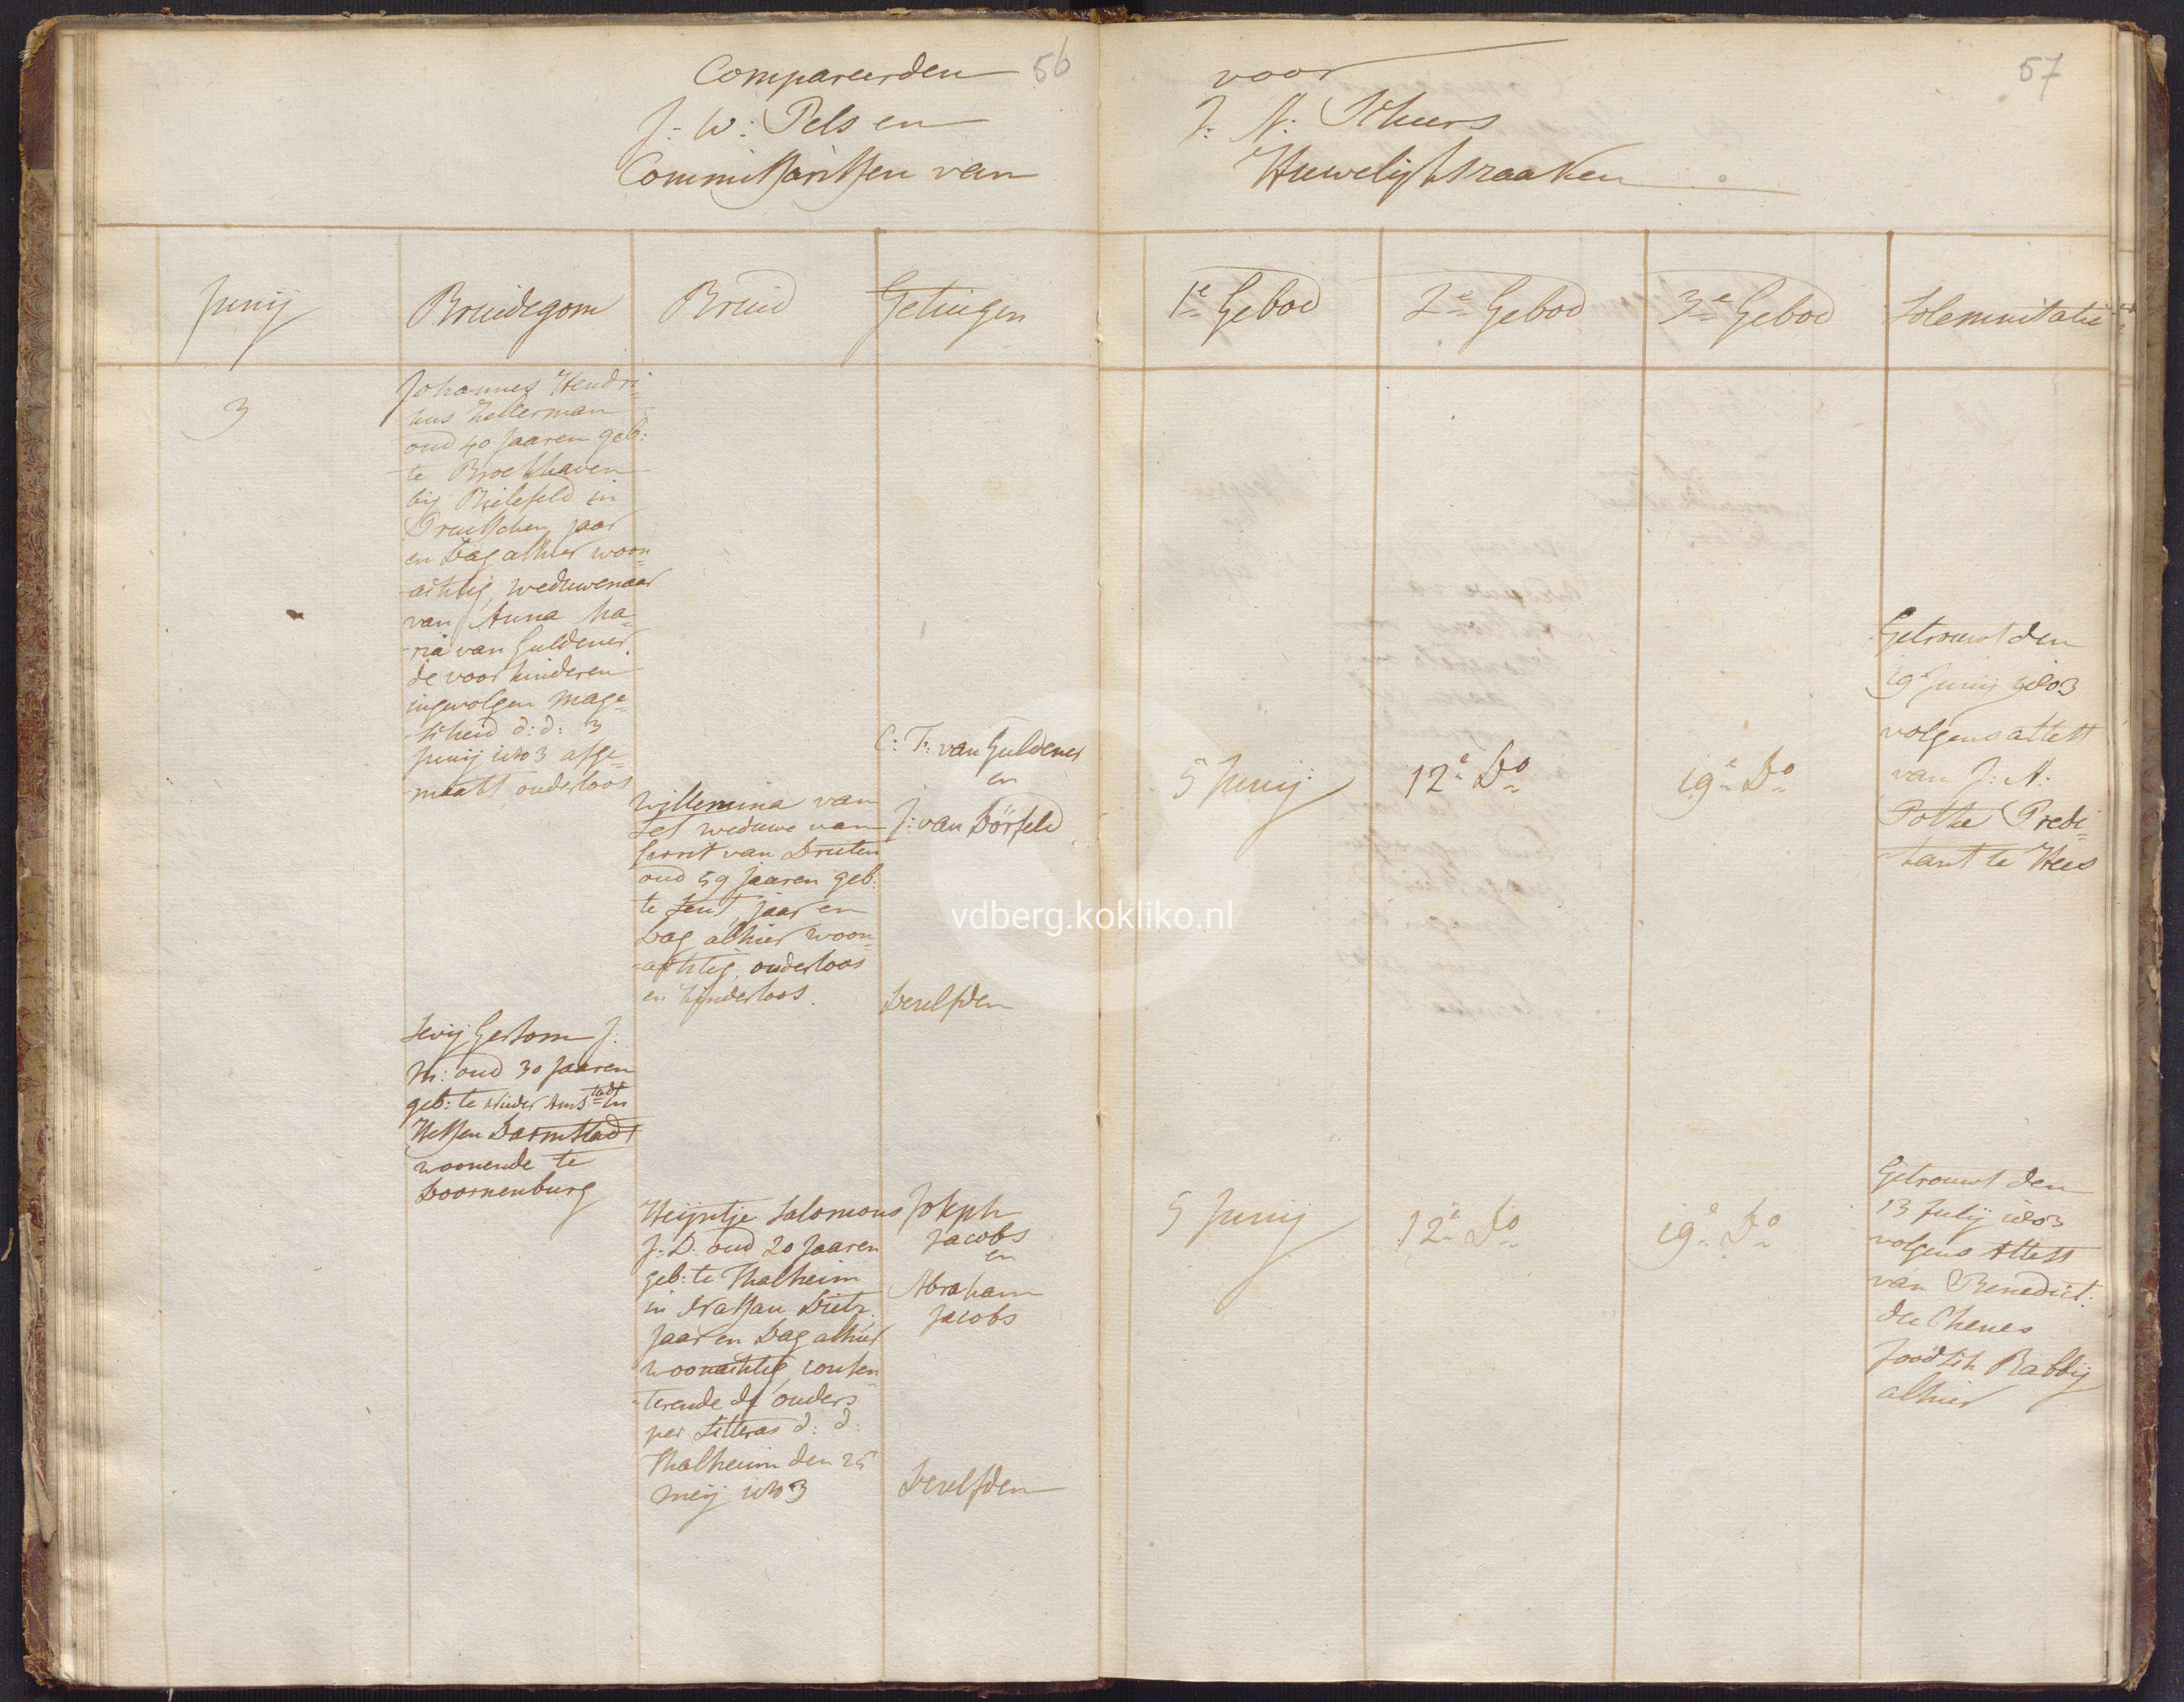 Compareerden 56
J: W: Pels en
Committarissen van
Junij
Bruidegom
Bruid
Getuigen
3
Johannes Hendri-
kus Zellerman
oud 40 Jaaren geb:
te Brockhaven
bij Bielefeld in
Pruisschen jaar
en Dag alhier woon-
achtig, weduwenaar
van Anna Ma-
ria van Guldener
de voor kinderen
ingevolgen mage-
scheid d: d: 3
Junij 1803 afge-
maakt ouderloos
Willemina van
weduwe van
Gerrit van Druten
oud 59 jaaren geb:
te Lent, jaar en
Dag alhier woon-
achtig, ouderloos
en kinderloos.
C: F: van Guldener
en
J: van Dörfeld
Deselfden
Levij Gersom J:
M: oud 30 Jaaren
geb: te Nieder
in
Hessen Darmstadt
woonende te
Doornenburg
Heijntje Salomons
J: D: oud 20 Jaaren
geb: te Thalheim
in Nassau Dietz
Jaar en Dag alhier
woonachtig, consen-
terende de ouders
per Litteras d: d:
Thalheim den 25
Meij 1803
Joseph
Jacobs
en
Abraham
Jacobs
Deselfden
voor 57
J: N: Scheers
Huwelijkszaaken
1e Gebod
2e Gebod
3e Gebod
Solemnitatie
5 Junij
12e Do
19e Do
Getrouwt den
19 Junij 1803
volgens attest
van J: A:
Pothe Predi-
kant te Hees
5 Junij
12e Do
19e Do
Getrouwt den
13 Julij 1803
volgens Attest
van Benedict:
du Chenes
Joodsch Rabbij
alhier
vdberg.kokliko.nl